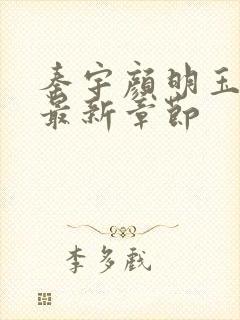 秦宇顔明玉
最新章節
李多戲